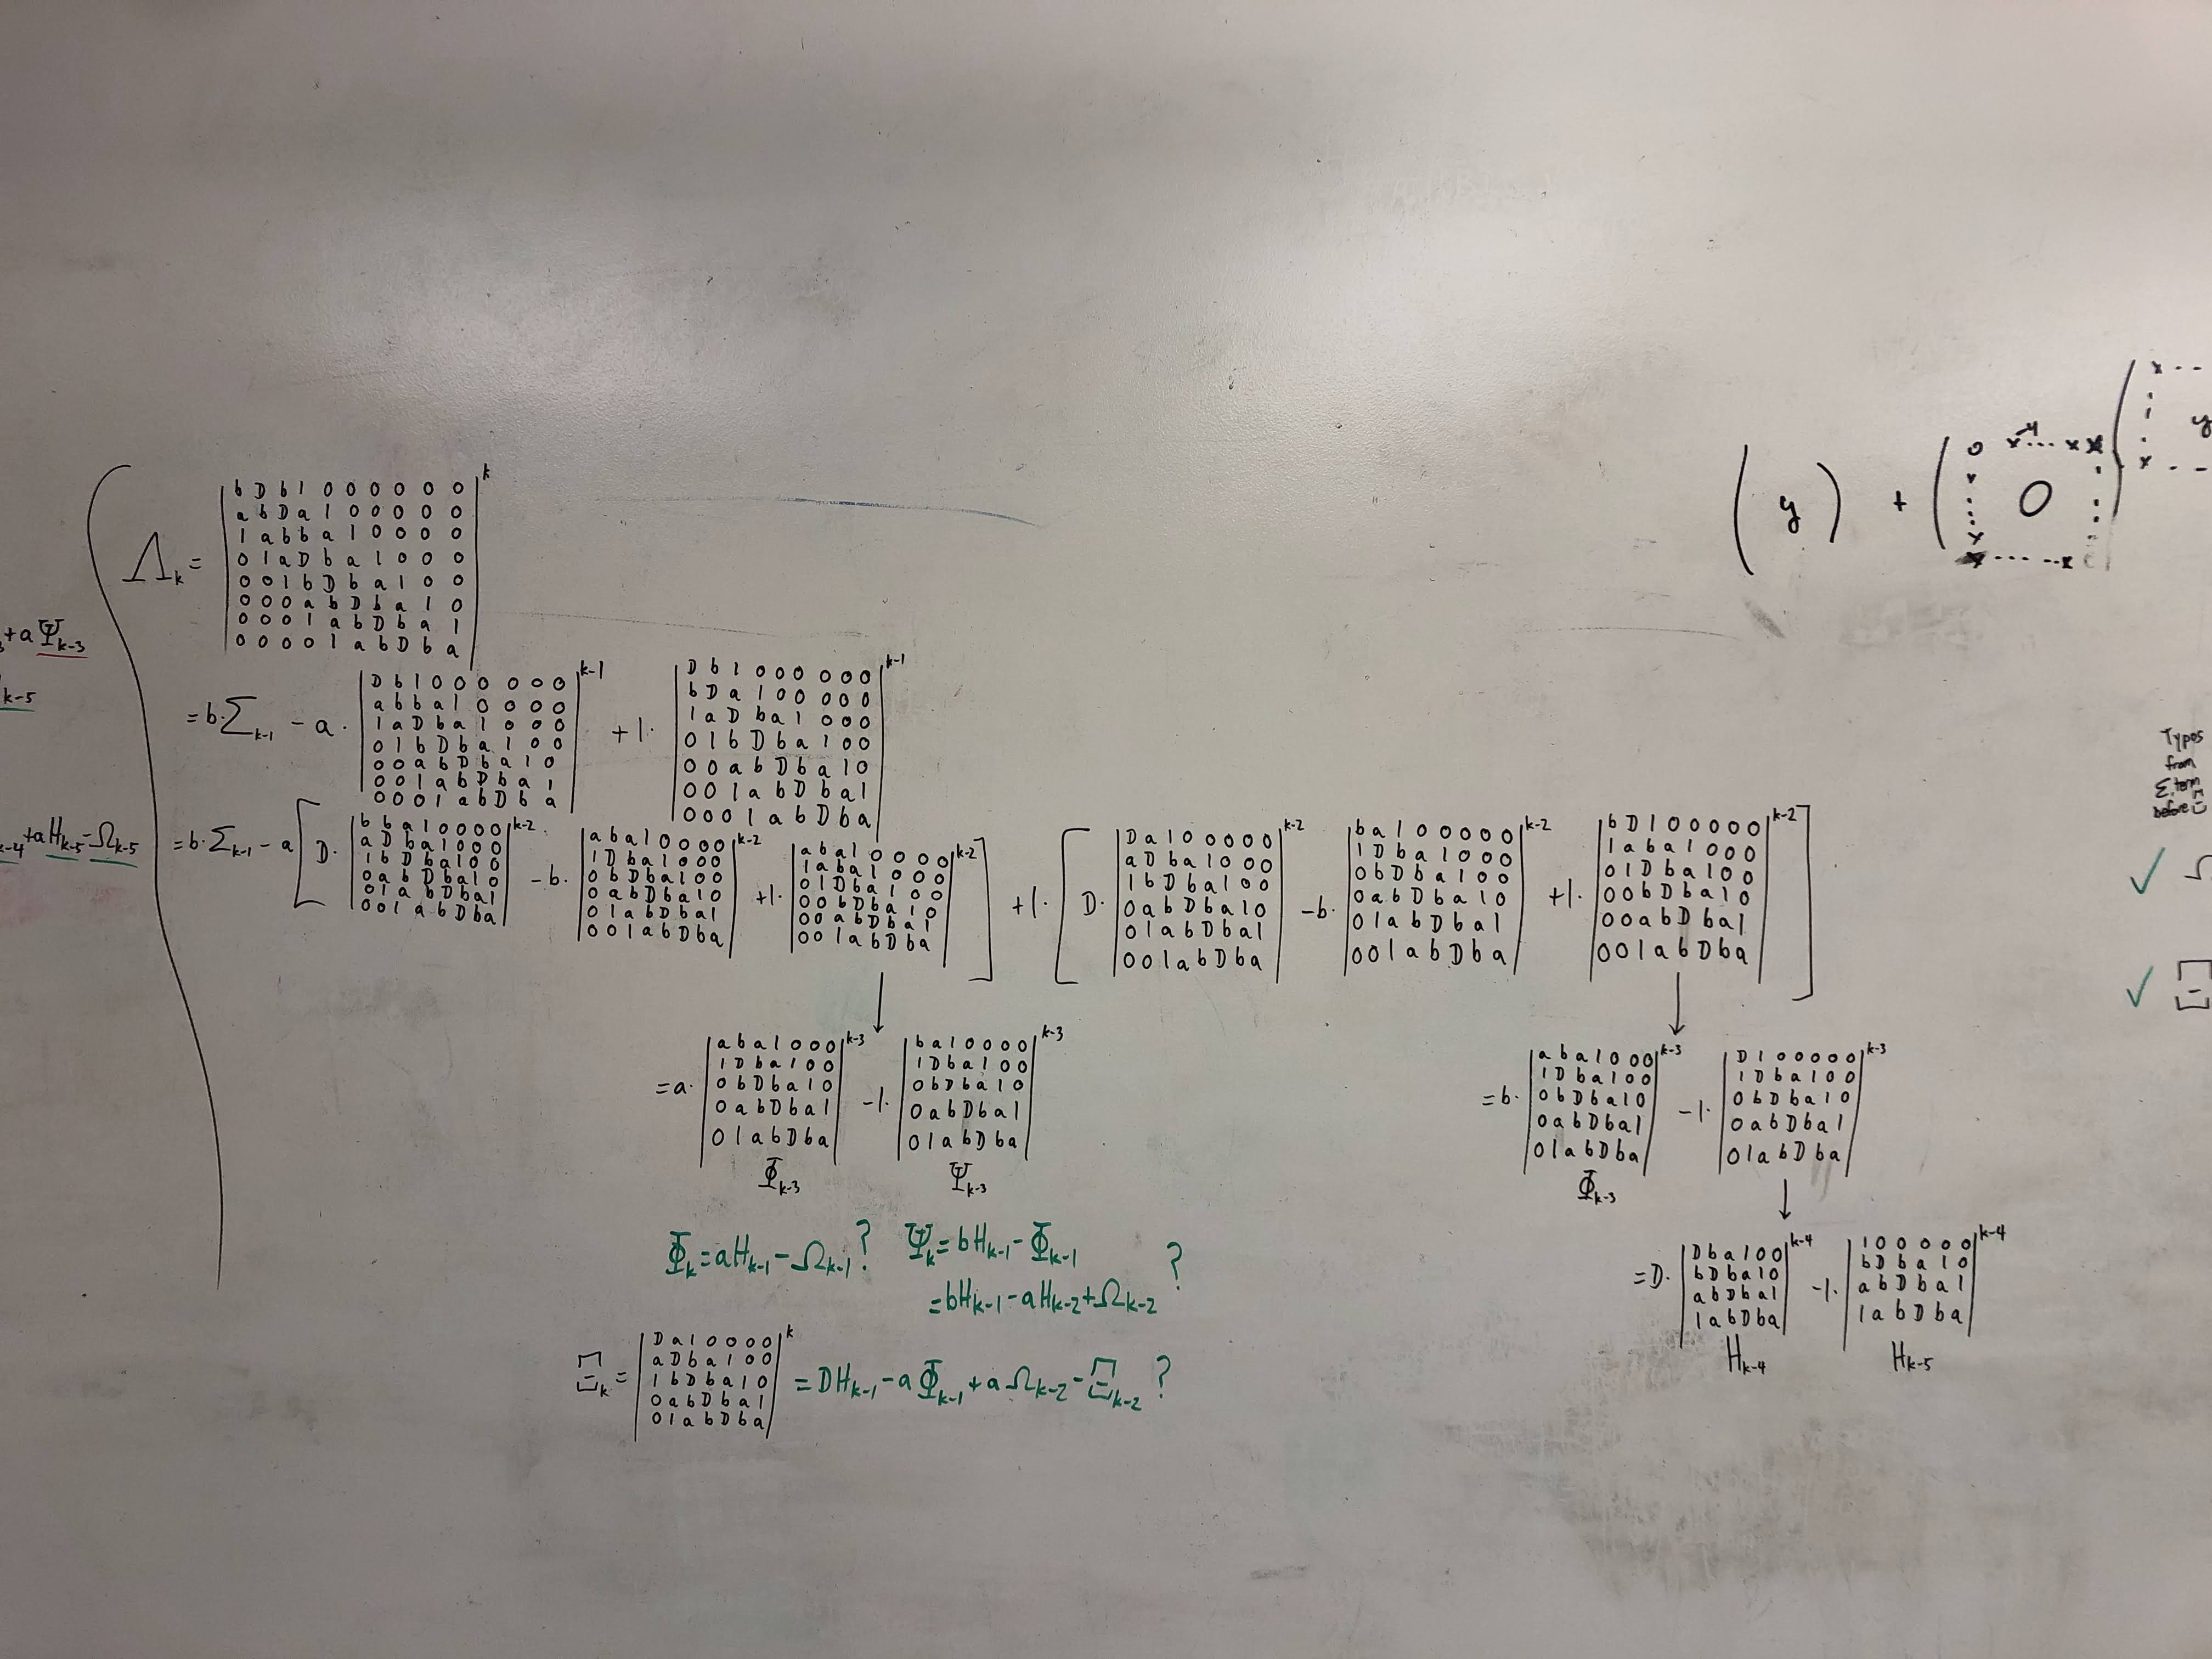 Λ_k =
| b D b 1 0 0 0 0 0 0 |^k
| a b D a 1 0 0 0 0 0 |
| 1 a b b a 1 0 0 0 0 |
| 0 1 a D b a 1 0 0 0 |
| 0 0 1 b D b a 1 0 0 |
| 0 0 0 a b D b a 1 0 |
| 0 0 0 1 a b D b a 1 |
| 0 0 0 0 1 a b D b a |
+ a Ψ_{k-3}
k-5
= b·Σ_{k-1} - a·
| D b 1 0 0 0 0 0 0 |^{k-1}
| a b b a 1 0 0 0 0 |
| 1 a D b a 1 0 0 0 |
| 0 1 b D b a 1 0 0 |
| 0 0 a b D b a 1 0 |
| 0 0 1 a b D b a 1 |
| 0 0 0 1 a b D b a |
+ 1·
| D b 1 0 0 0 0 0 0 |^{k-1}
| b D a 1 0 0 0 0 0 |
| 1 a D b a 1 0 0 0 |
| 0 1 b D b a 1 0 0 |
| 0 0 a b D b a 1 0 |
| 0 0 1 a b D b a 1 |
| 0 0 0 1 a b D b a |
k-4 + aH_{k-5} - Ω_{k-5}
= b·Σ_{k-1} - a [ D·
| b b a 1 0 0 0 0 |^{k-2}
| a D b a 1 0 0 0 |
| 1 b D b a 1 0 0 |
| 0 a b D b a 1 0 |
| 0 1 a b D b a 1 |
| 0 0 1 a b D b a |
- b·
| a b a 1 0 0 0 0 |^{k-2}
| 1 D b a 1 0 0 0 |
| 0 b D b a 1 0 0 |
| 0 a b D b a 1 0 |
| 0 1 a b D b a 1 |
| 0 0 1 a b D b a |
+ 1·
| a b a 1 0 0 0 0 |^{k-2}
| 1 a b a 1 0 0 0 |
| 0 1 D b a 1 0 0 |
| 0 0 b D b a 1 0 |
| 0 0 a b D b a 1 |
| 0 0 1 a b D b a |
] + 1· [ D·
| D a 1 0 0 0 0 0 |^{k-2}
| a D b a 1 0 0 0 |
| 1 b D b a 1 0 0 |
| 0 a b D b a 1 0 |
| 0 1 a b D b a 1 |
| 0 0 1 a b D b a |
- b·
| b a 1 0 0 0 0 0 |^{k-2}
| 1 D b a 1 0 0 0 |
| 0 b D b a 1 0 0 |
| 0 a b D b a 1 0 |
| 0 1 a b D b a 1 |
| 0 0 1 a b D b a |
+ 1·
| b D 1 0 0 0 0 0 |^{k-2}
| 1 a b a 1 0 0 0 |
| 0 1 D b a 1 0 0 |
| 0 0 b D b a 1 0 |
| 0 0 a b D b a 1 |
| 0 0 1 a b D b a |
]
= a·
| a b a 1 0 0 0 |^{k-3}
| 1 D b a 1 0 0 |
| 0 b D b a 1 0 |
| 0 a b D b a 1 |
| 0 1 a b D b a |
Φ_{k-3}
- 1·
| b a 1 0 0 0 0 |^{k-3}
| 1 D b a 1 0 0 |
| 0 b D b a 1 0 |
| 0 a b D b a 1 |
| 0 1 a b D b a |
Ψ_{k-3}
= b·
| a b a 1 0 0 0 |^{k-3}
| 1 D b a 1 0 0 |
| 0 b D b a 1 0 |
| 0 a b D b a 1 |
| 0 1 a b D b a |
Φ_{k-3}
- 1·
| D 1 0 0 0 0 0 |^{k-3}
| 1 D b a 1 0 0 |
| 0 b D b a 1 0 |
| 0 a b D b a 1 |
| 0 1 a b D b a |
= D·
| D b a 1 0 0 |^{k-4}
| b D b a 1 0 |
| a b D b a 1 |
| 1 a b D b a |
H_{k-4}
- 1·
| 1 0 0 0 0 0 |^{k-4}
| b D b a 1 0 |
| a b D b a 1 |
| 1 a b D b a |
H_{k-5}
Φ_k = aH_{k-1} - Ω_{k-1} ?
Ψ_k = bH_{k-1} - Φ_{k-1}
= bH_{k-1} - aH_{k-2} + Ω_{k-2} ?
Ξ_k =
| D a 1 0 0 0 0 |^k
| a D b a 1 0 0 |
| 1 b D b a 1 0 |
| 0 a b D b a 1 |
| 0 1 a b D b a |
= DH_{k-1} - aΦ_{k-1} + aΩ_{k-2} - Ξ_{k-2} ?
( y ) + ( 0 x ... x x
0
x ... x
x . . .
y
x . . .
Typos
from
Σ term
before
✓ Ω
✓ Ξ